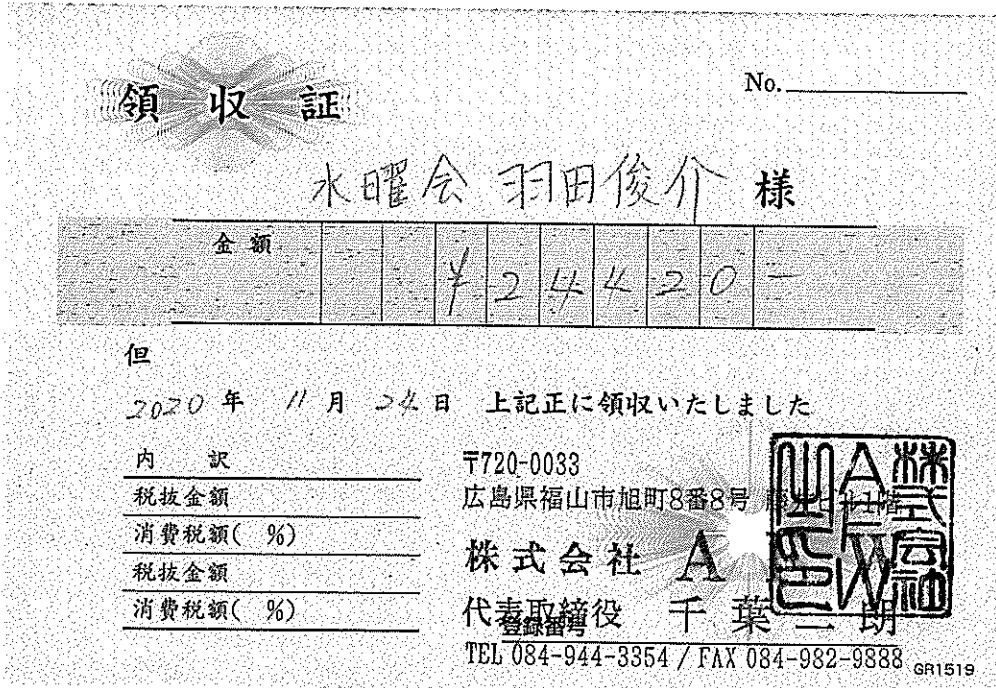 領収証
No.
水曜会 羽田俊介 様
金額 ¥24420-
但
2020年 11月 24日 上記正に領収いたしました
内訳
税抜金額
消費税額( %)
税抜金額
消費税額( %)
〒720-0033
広島県福山市旭町8番8号 藤井ビル1階
株式会社 A
代表取締役 千葉二朗
登録番号
TEL 084-944-3354 / FAX 084-982-9888
株式会社
GR1519